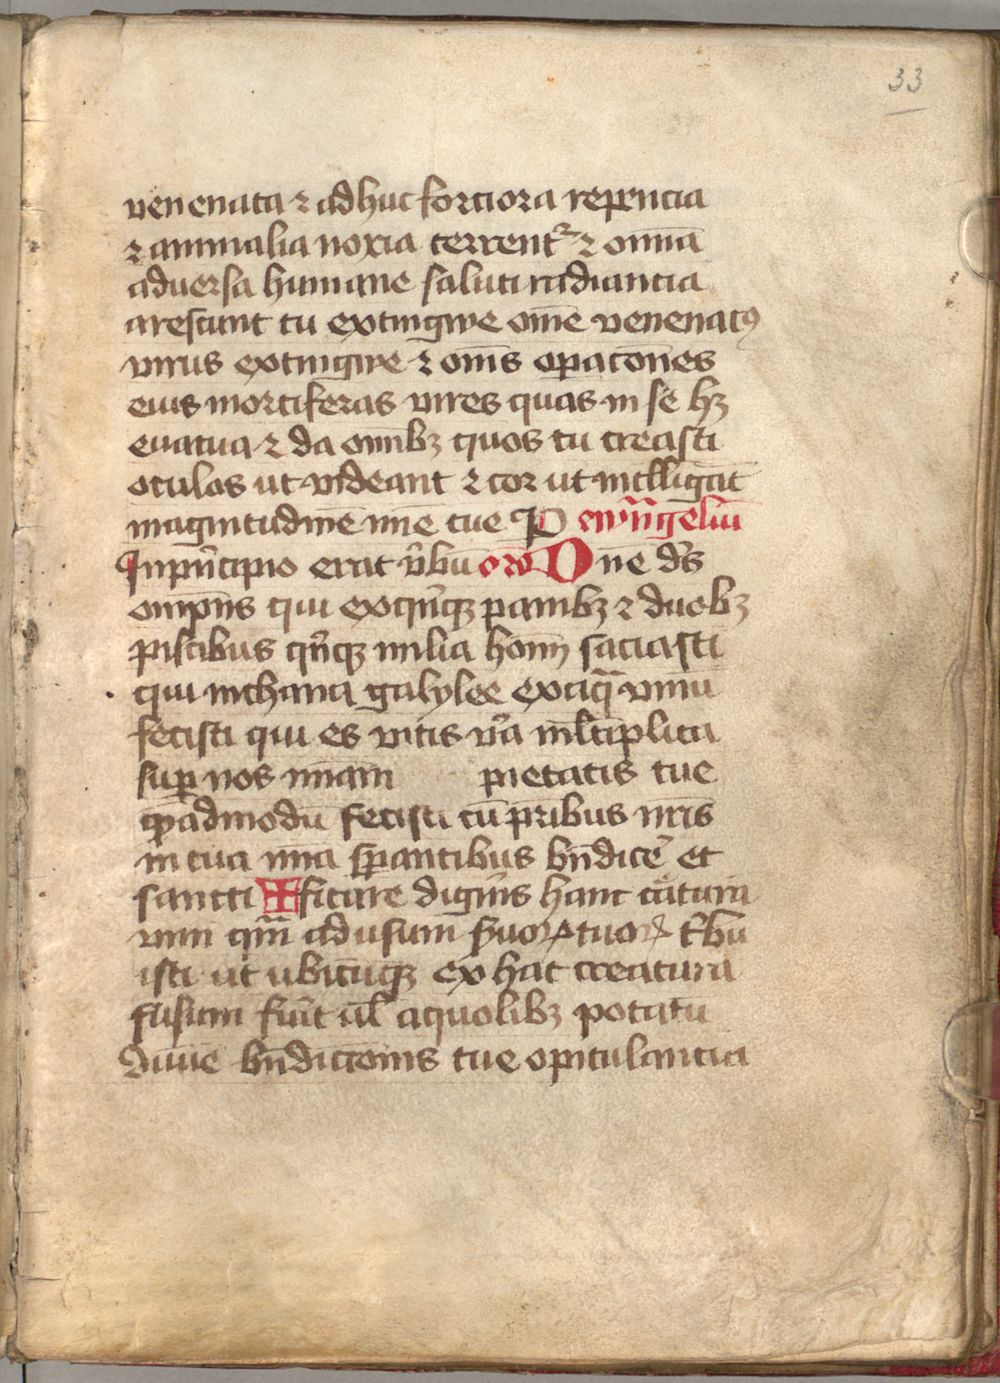 33
venenata ⁊ adhuc forciora repencia
⁊ animalia noxia terrent᷑ ⁊ om̄ia
adversa humane saluti radiancia
arescunt tu extingwe om̄e venenatꝰ
virus extingwe ⁊ om̄s oꝑac̄ones
eius mortiferas vires quas in se hꝫ
evacua ⁊ da om̄ibꝫ quos tu creasti
oculos ut videant ⁊ cor ut intelligāt
magnitudinē mīe tue P ewāngeliū
In pͥncipio erat v̄bū orō Dne ds̄
om̄ps qui ex qͥnqꝫ panibꝫ ⁊ duobꝫ
piscibus qͥnqꝫ milia homī saciasti
qui in chana galylee ex aqua vinū
fecisti qui es vitis v̄a ml̄tiplica
suꝑ nos mīam pietatis tue
quēadmodū fecisti cū pr̄ibus nr̄is
in tua mīa sꝑantibus bn̄dicē et
sancti ✠ ficare digneris hanc c̄aturā
vini quā ad usum s̄uoꝝ tuoꝝ tͥbu
isti ut ubicūqꝫ ex hac creatura
fusum fūit ul̄ a quolibꝫ potatū
diuīe bn̄dictōnis tue opitulancia